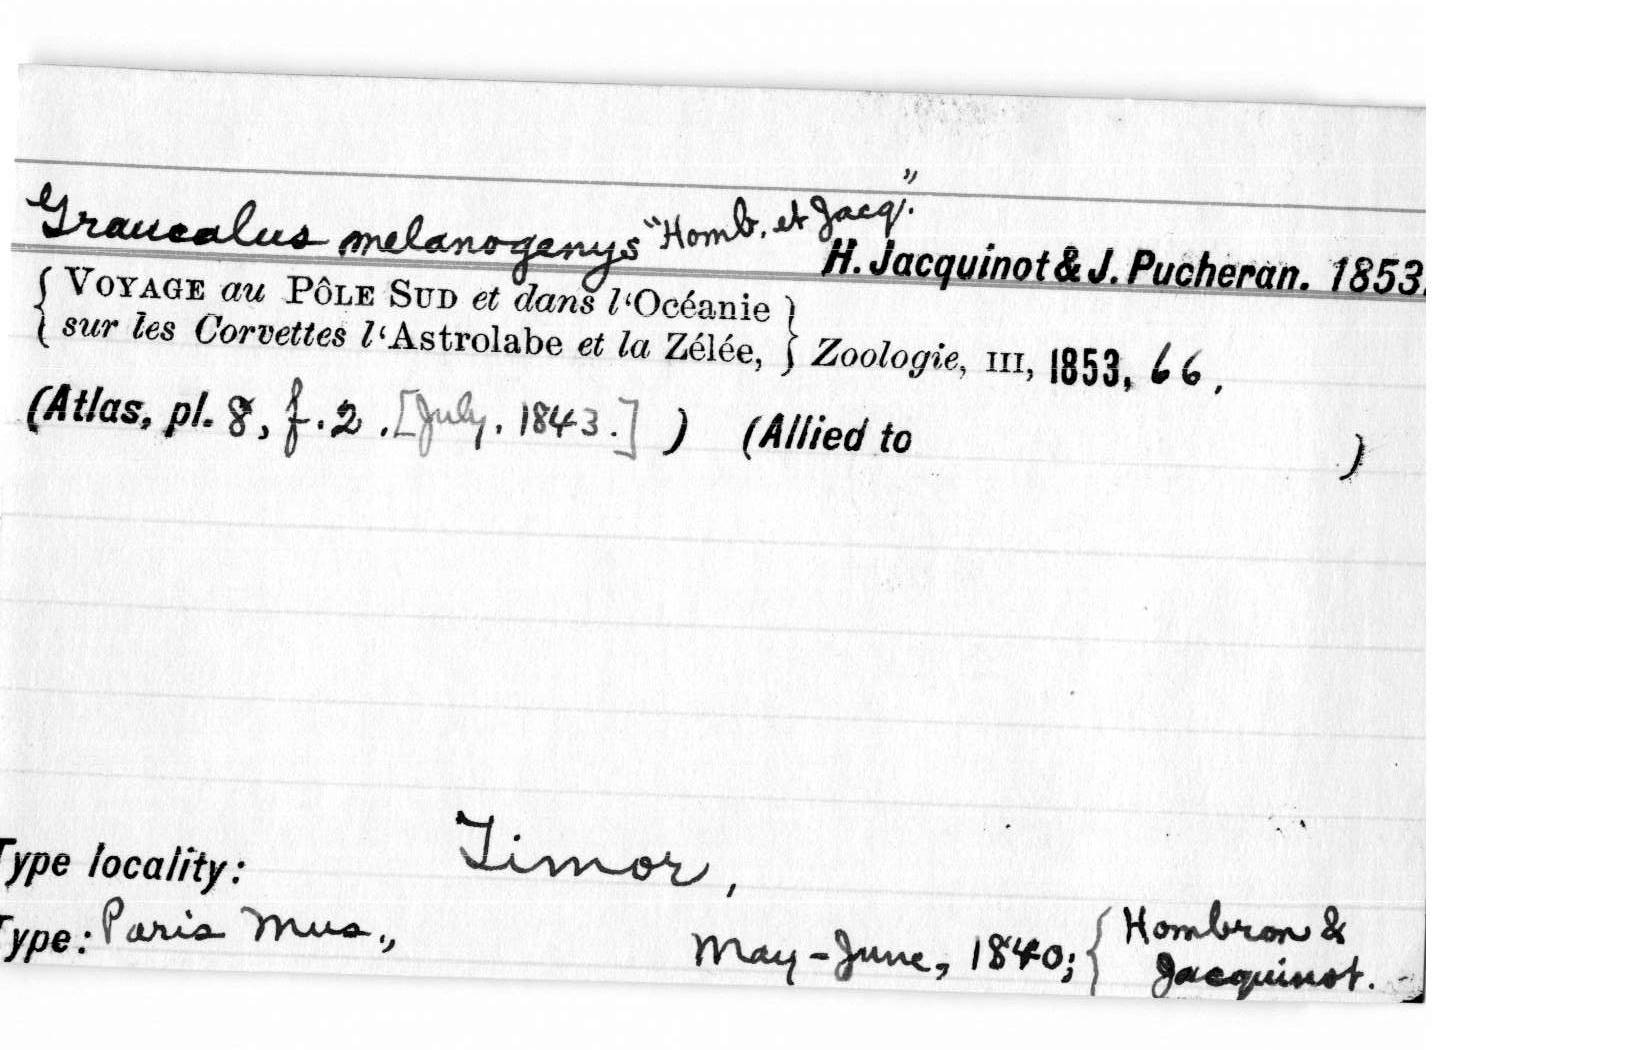 Graucalus melanogenys "Homb. et Jacq."
H. Jacquinot & J. Pucheran. 1853.
{ VOYAGE au PÔLE SUD et dans l'Océanie }
{ sur les Corvettes l'Astrolabe et la Zélée, } Zoologie, III, 1853, 66,
(Atlas, pl. 8, f. 2. [July, 1843.] ) (Allied to )
Type locality: Timor,
Type: Paris Mus., May-June, 1840; { Hombron &
Jacquinot.